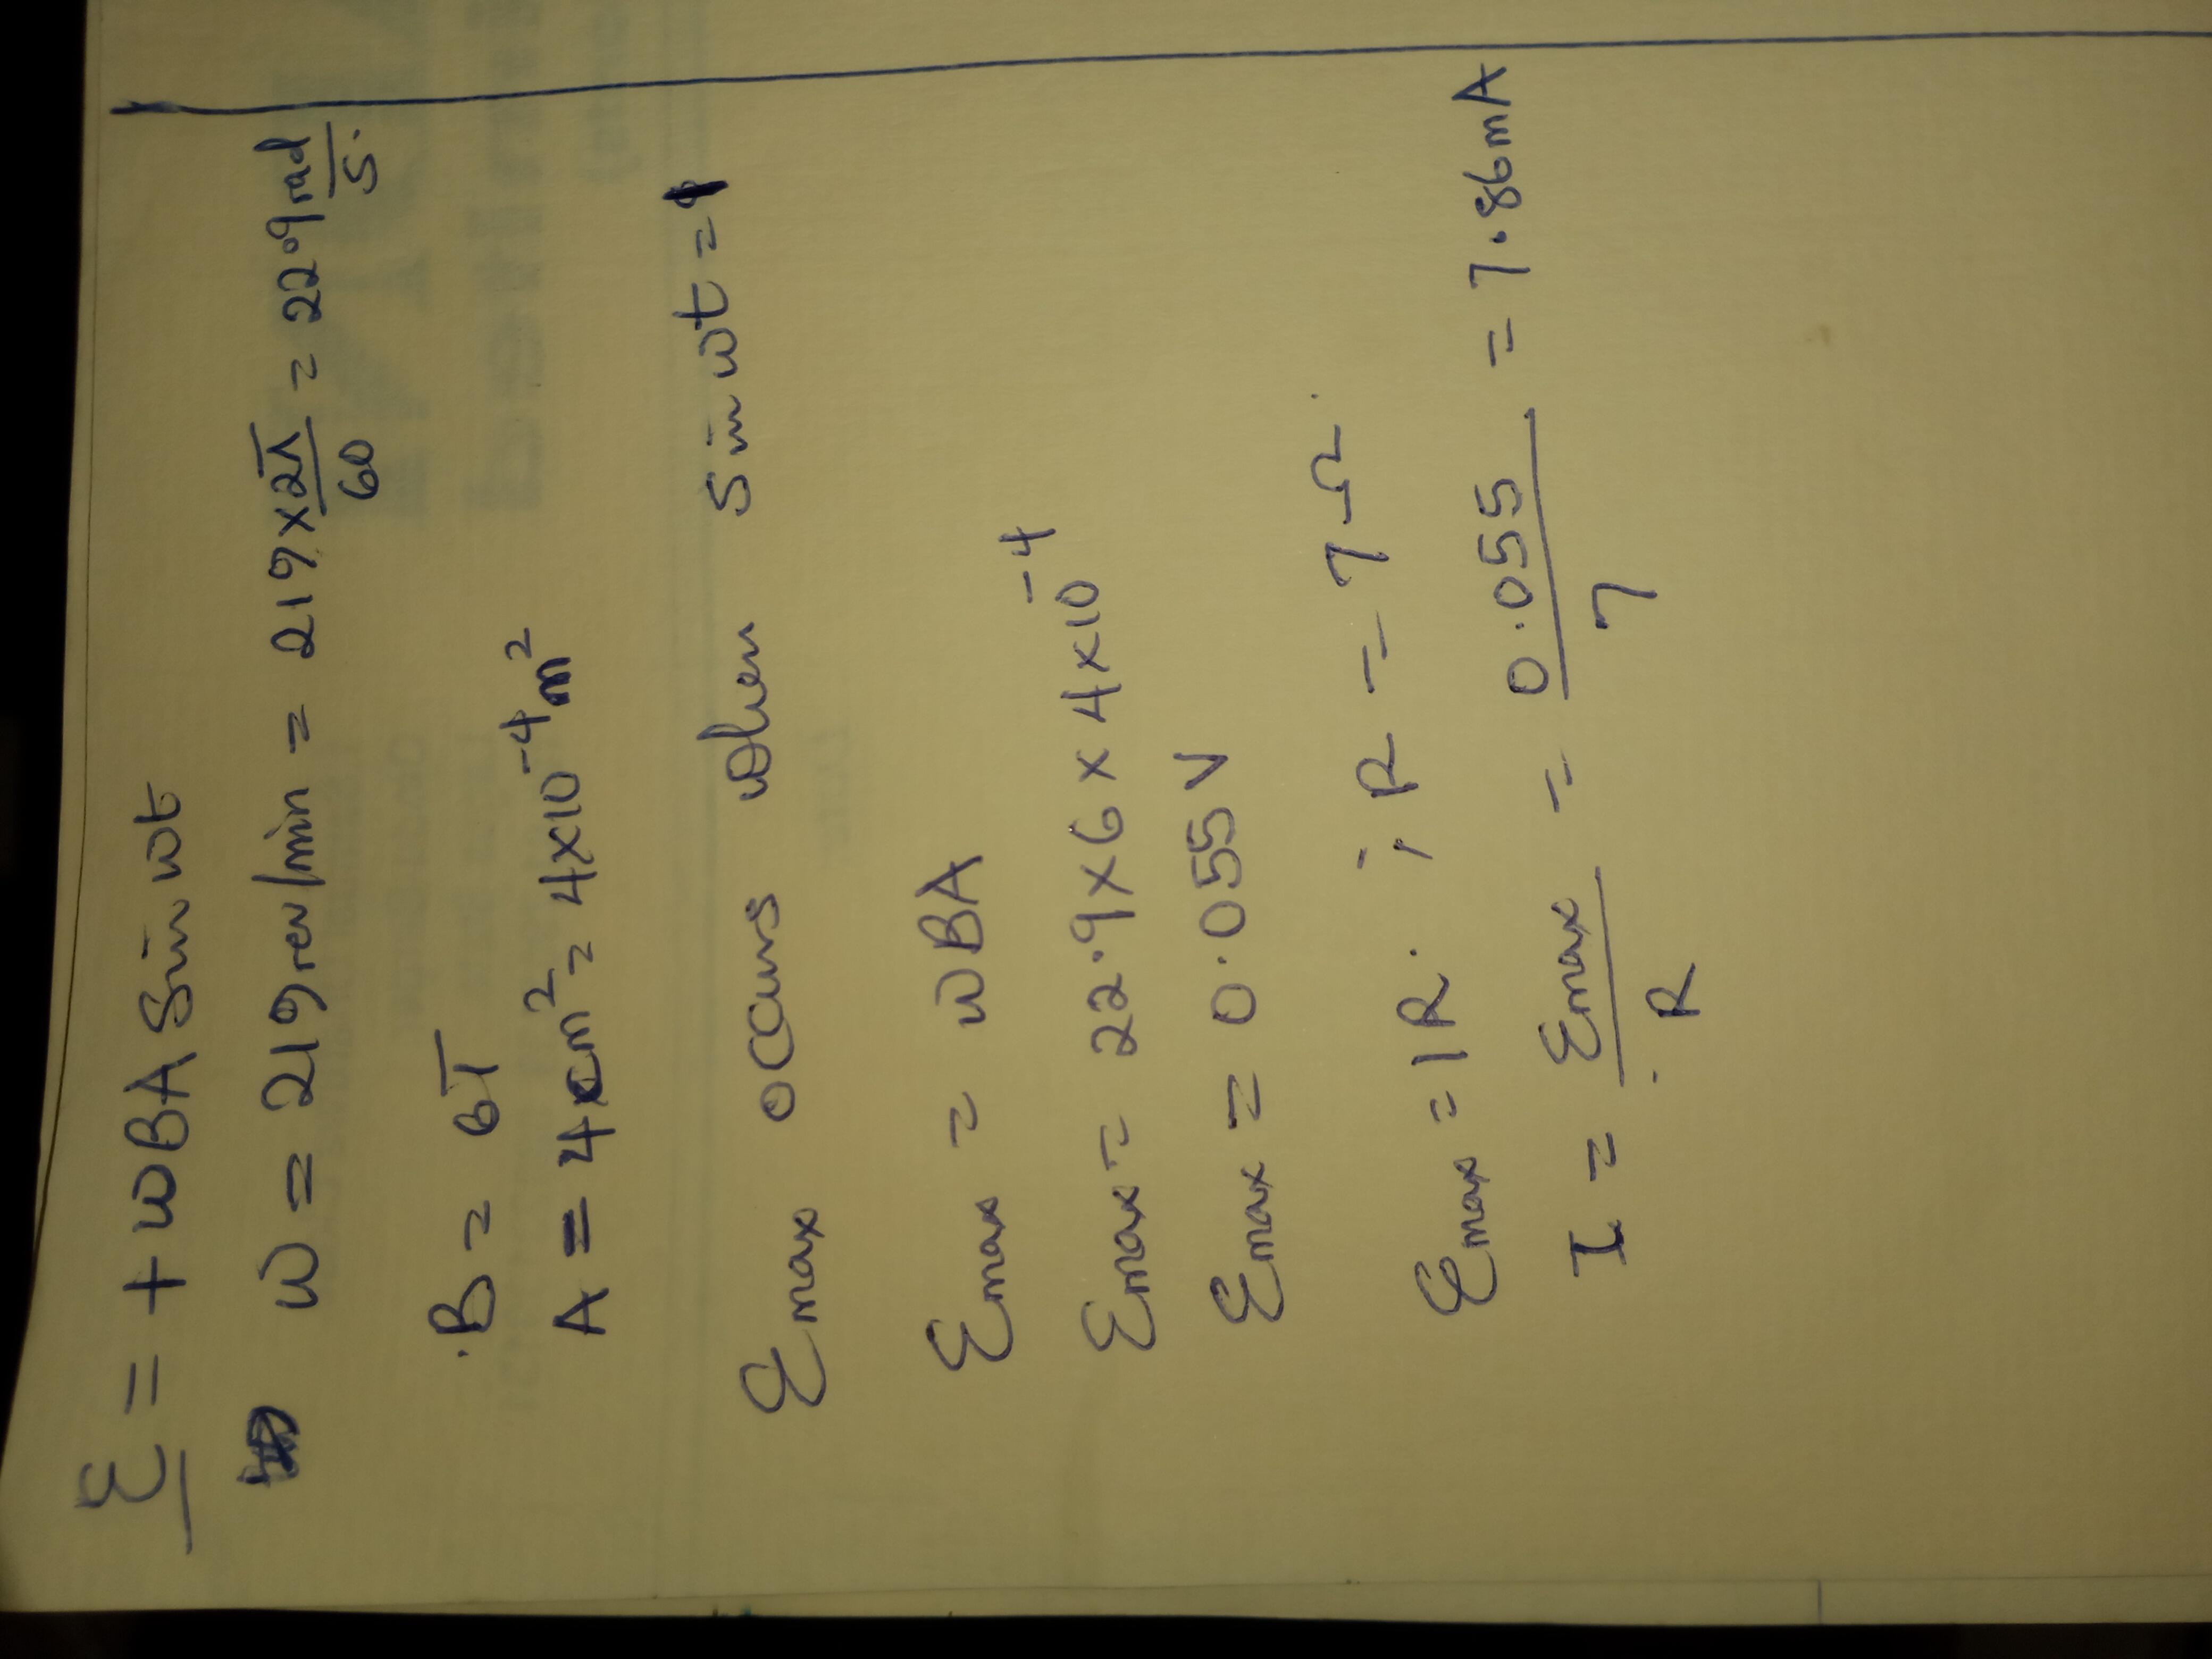 ε = + wBA Sin wt
w = 219 rev/min = 219 × 2π/60 = 22.9 rad/s.
B = 6T
A = 4cm² = 4×10⁻⁴ m²
εmax occurs when sin wt = 1
εmax = wBA
εmax = 22.9 × 6 × 4×10⁻⁴
εmax = 0.055 V
εmax = IR. ; R = 7Ω.
I = εmax/R = 0.055/7 = 7.86mA